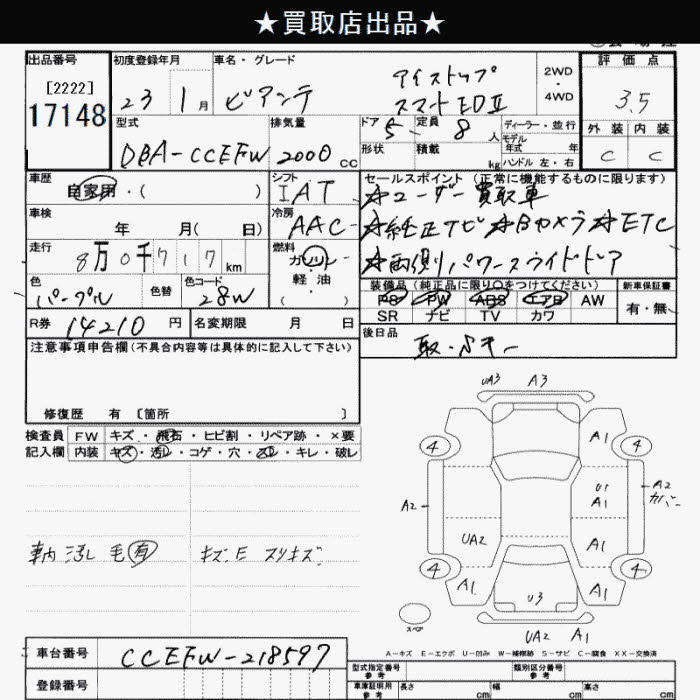 ★買取店出品★
出品番号 初度登録年月 車名・グレード 評価点
[2222] 23 1月 ビアンテ アイストップ 2WD
17148 スマートEDⅡ ・4WD 3.5
型式 排気量 ドア 5 定員 8人 ディーラー・並行 外装 内装
DBA-CCEFW 2000cc 形状 積載 kg モデル年式 年 C C
ハンドル 左・右
車歴 シフト セールスポイント (正常に機能するものに限ります)
自家用・( ) IAT ☆ユーザー買取車
車検 冷房 ☆純正ナビ☆Bカメラ☆ETC
年 月( 日) AAC
走行 燃料 ☆両側パワースライドドア
8万0千717km ガソリン・軽油
色 色替 色コード ( ) 装備品 (純正品に限り○をつけてください) 新車保証書
パープル 28W PS PW ABS エアB AW 有・無
SR ナビ TV カワ
R券 14210円 名変期限 月 日 後日品
注意事項申告欄 (不具合内容等は具体的に記入して下さい) 取・Sキー
修復歴 有 〔箇所 〕
検査員 FW キズ・飛石・ヒビ割・リペア跡・×要
記入欄 内装 キズ・汚レ・コゲ・穴・スレ・キレ・破レ
車内汚れ 毛有 キズE スリキズ
UA3 A3
4 A1 4
A2 U1 A1 A2 カバー
UA2 A1
4 A1 A1 4
U3
スペア UA2 A1
A-キズ E-エクボ U-凹み W-補修跡 S-サビ C-腐食 XX-交換済
車台番号 CCEFW-218597 型式指定番号 参考 類別区分番号 参考
登録番号 車庫証明用 参考 長さ cm 幅 cm 高さ cm